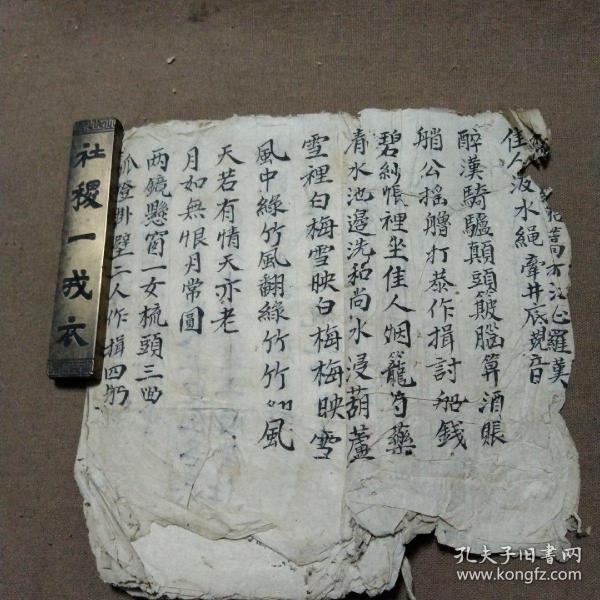 羅漢
佳人汲水繩牽井底觀音
醉漢騎驢顛頭簸腦算酒賬
艄公摇艪打恭作揖討船錢
碧紗帳裡坐佳人烟籠芍藥
清水池邊洗和尚水浸葫蘆
雪裡白梅雪映白梅梅映雪
風中綠竹風翻綠竹竹風
天若有情天亦老
月如無恨月常圓
兩鏡懸窗一女梳頭三面
孤燈掛壁二人作揖四躬
社稷一戎衣
孔夫子旧书网
www.kongfz.com